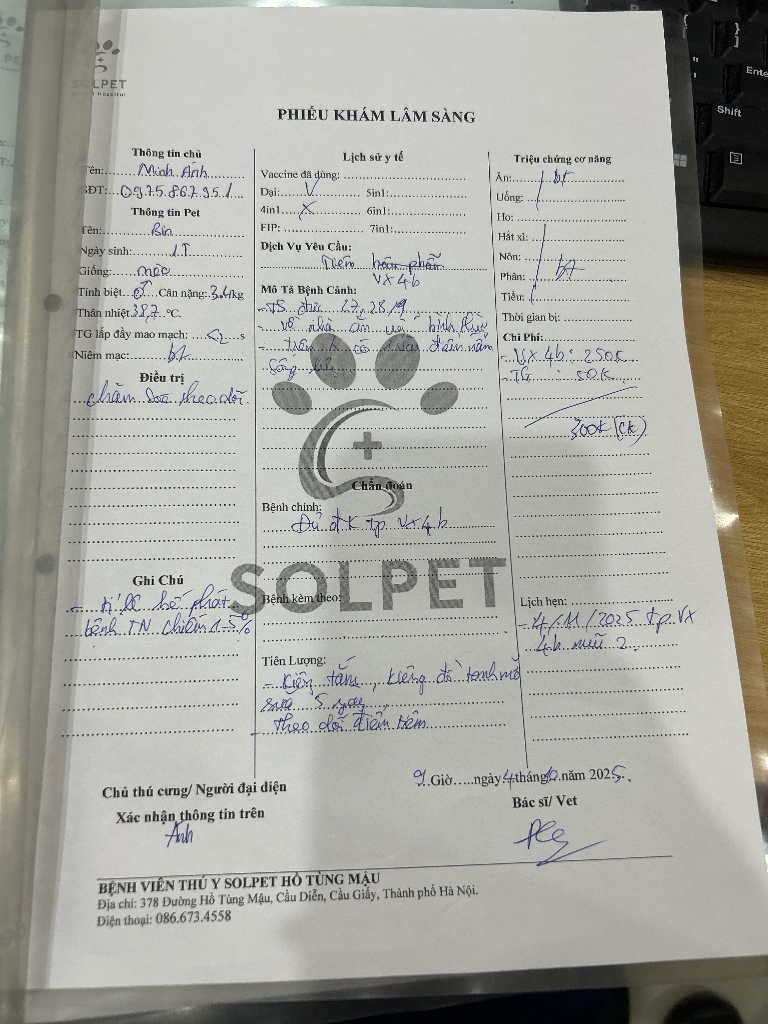 SOLPET
PHIẾU KHÁM LÂM SÀNG
Thông tin chủ
Tên: Minh Anh
SĐT: 0975.867.951
Thông tin Pet
Tên: Bin
Ngày sinh: 1T
Giống: mèo
Tính biệt: ♂ Cân nặng: 3.4kg
Thân nhiệt: 38,7 °C.
TG lấp đầy mao mạch: <2 s
Niêm mạc: bt
Điều trị
chăm sóc theo dõi
Ghi Chú
- tỉ lệ bộc phát
bệnh TN chiếm 1-5%
Lịch sử y tế
Vaccine đã dùng:
Dại: V 5in1:
4in1: X 6in1:
FIP: 7in1:
Dịch Vụ Yêu Cầu:
Tiêm
VX 4b
Mô Tả Bệnh Cảnh:
- TS đực 27,28/9
- về nhà ăn uống bình thường
Chẩn đoán
Bệnh chính:
Đủ đk tp VX 4b
SOLPET
Bệnh kèm theo:
Tiên Lượng:
- Kiêng tắm, kiêng đồ tanh mỡ
sữa 5 ngày
theo dõi điểm tiêm
Triệu chứng cơ năng
Ăn: bt
Uống:
Ho:
Hắt xì:
Nôn:
Phân: bt
Tiểu:
Thời gian bị:
Chi Phí:
- VX 4b: 250K
- TG: 50K
300K (CK)
Lịch hẹn:
- 4/11/2025 tp VX
4b mũi 2
9 Giờ.....ngày 4 tháng 10 năm 2025.
Chủ thú cưng/ Người đại diện
Xác nhận thông tin trên
Anh
Bác sĩ/ Vet
BỆNH VIỆN THÚ Y SOLPET HỒ TÙNG MẬU
Địa chỉ: 378 Đường Hồ Tùng Mậu, Cầu Diễn, Cầu Giấy, Thành phố Hà Nội.
Điện thoại: 086.673.4558
Enter
Shift